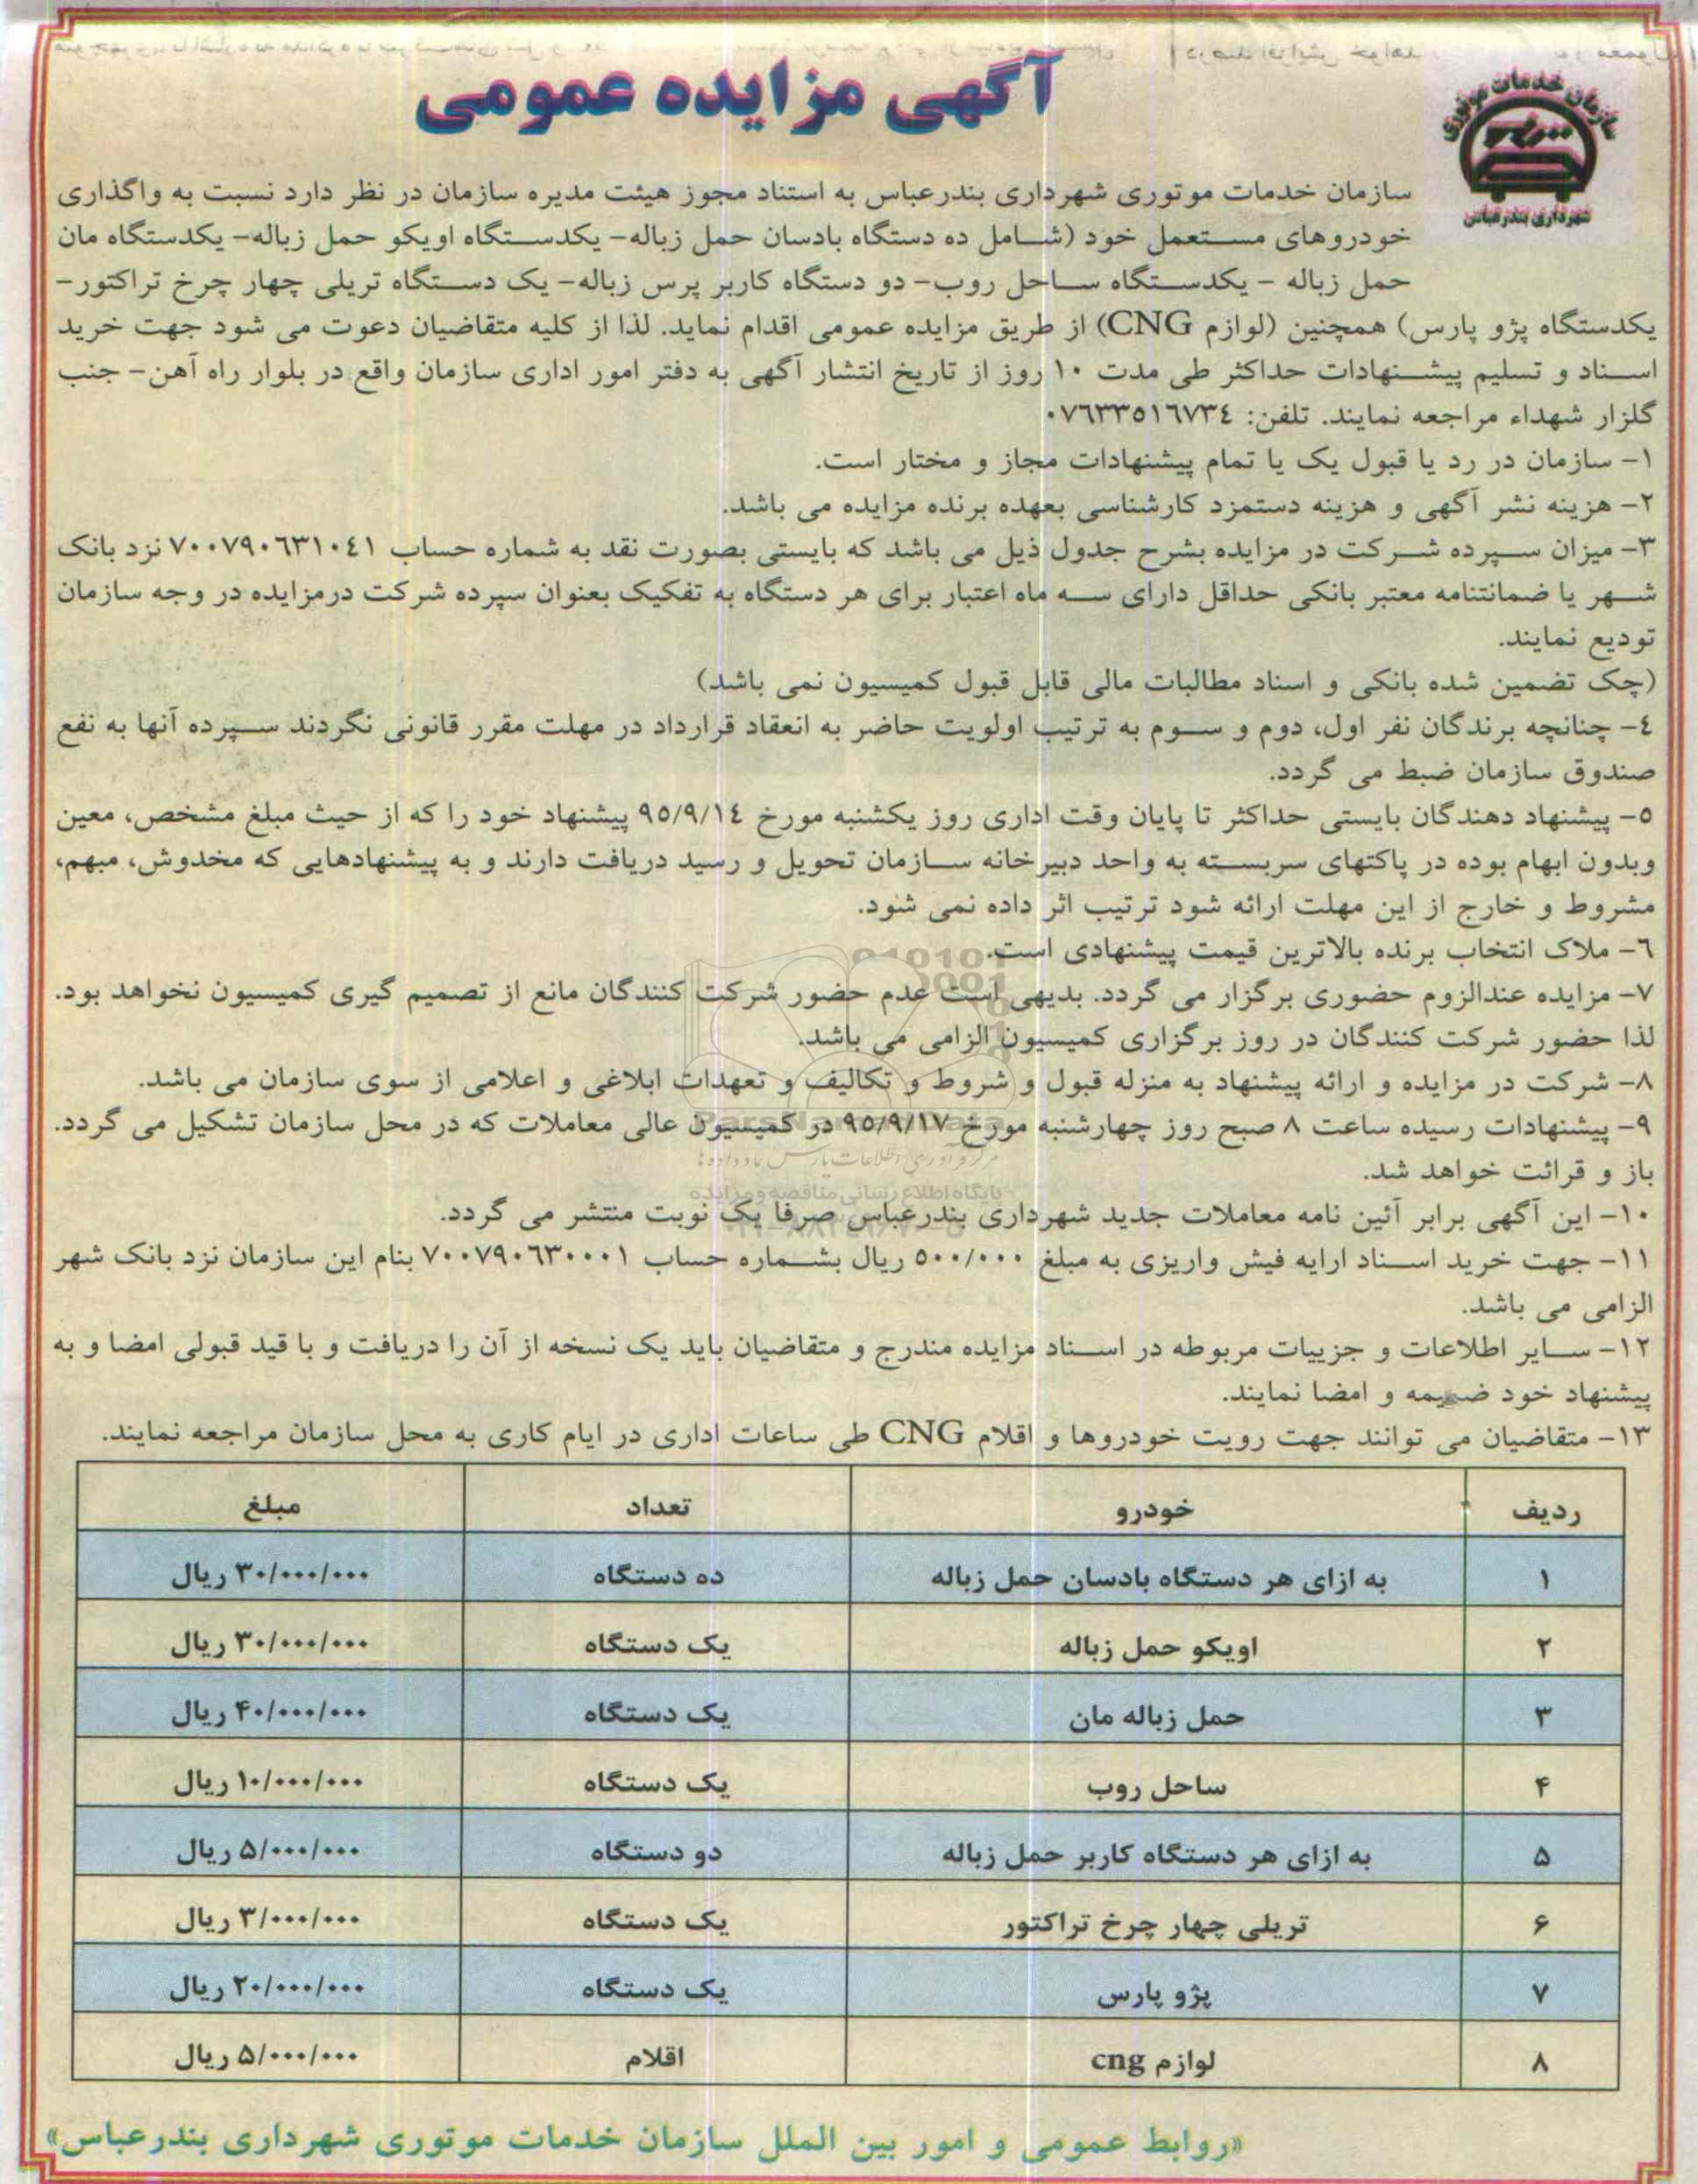 سازمان خدمات موتوری
شهرداری بندرعباس
آگهی مزایده عمومی
سازمان خدمات موتوری شهرداری بندرعباس به استناد مجوز هیئت مدیره سازمان در نظر دارد نسبت به واگذاری
خودروهای مستعمل خود (شامل ده دستگاه بادسان حمل زباله- یکدستگاه اویکو حمل زباله- یکدستگاه مان
حمل زباله - یکدستگاه ساحل روب- دو دستگاه کاربر پرس زباله- یک دستگاه تریلی چهار چرخ تراکتور-
یکدستگاه پژو پارس) همچنین (لوازم CNG) از طریق مزایده عمومی اقدام نماید. لذا از کلیه متقاضیان دعوت می شود جهت خرید
اسناد و تسلیم پیشنهادات حداکثر طی مدت ۱۰ روز از تاریخ انتشار آگهی به دفتر امور اداری سازمان واقع در بلوار راه آهن- جنب
گلزار شهداء مراجعه نمایند. تلفن: ۰۷٦۳۳٥۱٦۷۳٤
۱- سازمان در رد یا قبول یک یا تمام پیشنهادات مجاز و مختار است.
۲- هزینه نشر آگهی و هزینه دستمزد کارشناسی بعهده برنده مزایده می باشد.
۳- میزان سپرده شرکت در مزایده بشرح جدول ذیل می باشد که بایستی بصورت نقد به شماره حساب ۷۰۰۷۹۰٦۳۱۰٤۱ نزد بانک
شهر یا ضمانتنامه معتبر بانکی حداقل دارای سه ماه اعتبار برای هر دستگاه به تفکیک بعنوان سپرده شرکت درمزایده در وجه سازمان
تودیع نمایند.
(چک تضمین شده بانکی و اسناد مطالبات مالی قابل قبول کمیسیون نمی باشد)
٤- چنانچه برندگان نفر اول، دوم و سوم به ترتیب اولویت حاضر به انعقاد قرارداد در مهلت مقرر قانونی نگردند سپرده آنها به نفع
صندوق سازمان ضبط می گردد.
٥- پیشنهاد دهندگان بایستی حداکثر تا پایان وقت اداری روز یکشنبه مورخ ۹٥/۹/۱٤ پیشنهاد خود را که از حیث مبلغ مشخص، معین
وبدون ابهام بوده در پاکتهای سربسته به واحد دبیرخانه سازمان تحویل و رسید دریافت دارند و به پیشنهادهایی که مخدوش، مبهم،
مشروط و خارج از این مهلت ارائه شود ترتیب اثر داده نمی شود.
٦- ملاک انتخاب برنده بالاترین قیمت پیشنهادی است.
۷- مزایده عندالزوم حضوری برگزار می گردد. بدیهی است عدم حضور شرکت کنندگان مانع از تصمیم گیری کمیسیون نخواهد بود.
لذا حضور شرکت کنندگان در روز برگزاری کمیسیون الزامی می باشد.
۸- شرکت در مزایده و ارائه پیشنهاد به منزله قبول و شروط و تکالیف و تعهدات ابلاغی و اعلامی از سوی سازمان می باشد.
۹- پیشنهادات رسیده ساعت ۸ صبح روز چهارشنبه مورخ ۹٥/۹/۱۷ در کمیسیون عالی معاملات که در محل سازمان تشکیل می گردد.
باز و قرائت خواهد شد.
۱۰- این آگهی برابر آئین نامه معاملات جدید شهرداری بندرعباس صرفا یک نوبت منتشر می گردد.
۱۱- جهت خرید اسناد ارایه فیش واریزی به مبلغ ٥۰۰/۰۰۰ ریال بشماره حساب ۷۰۰۷۹۰٦۳۰۰۰۱ بنام این سازمان نزد بانک شهر
الزامی می باشد.
۱۲- سایر اطلاعات و جزییات مربوطه در اسناد مزایده مندرج و متقاضیان باید یک نسخه از آن را دریافت و با قید قبولی امضا و به
پیشنهاد خود ضمیمه و امضا نمایند.
۱۳- متقاضیان می توانند جهت رویت خودروها و اقلام CNG طی ساعات اداری در ایام کاری به محل سازمان مراجعه نمایند.
ردیف خودرو تعداد مبلغ
۱ به ازای هر دستگاه بادسان حمل زباله ده دستگاه ۳۰/۰۰۰/۰۰۰ ریال
۲ اویکو حمل زباله یک دستگاه ۳۰/۰۰۰/۰۰۰ ریال
۳ حمل زباله مان یک دستگاه ۴۰/۰۰۰/۰۰۰ ریال
۴ ساحل روب یک دستگاه ۱۰/۰۰۰/۰۰۰ ریال
۵ به ازای هر دستگاه کاربر حمل زباله دو دستگاه ۵/۰۰۰/۰۰۰ ریال
۶ تریلی چهار چرخ تراکتور یک دستگاه ۳/۰۰۰/۰۰۰ ریال
۷ پژو پارس یک دستگاه ۲۰/۰۰۰/۰۰۰ ریال
۸ لوازم cng اقلام ۵/۰۰۰/۰۰۰ ریال
«روابط عمومی و امور بین الملل سازمان خدمات موتوری شهرداری بندرعباس»